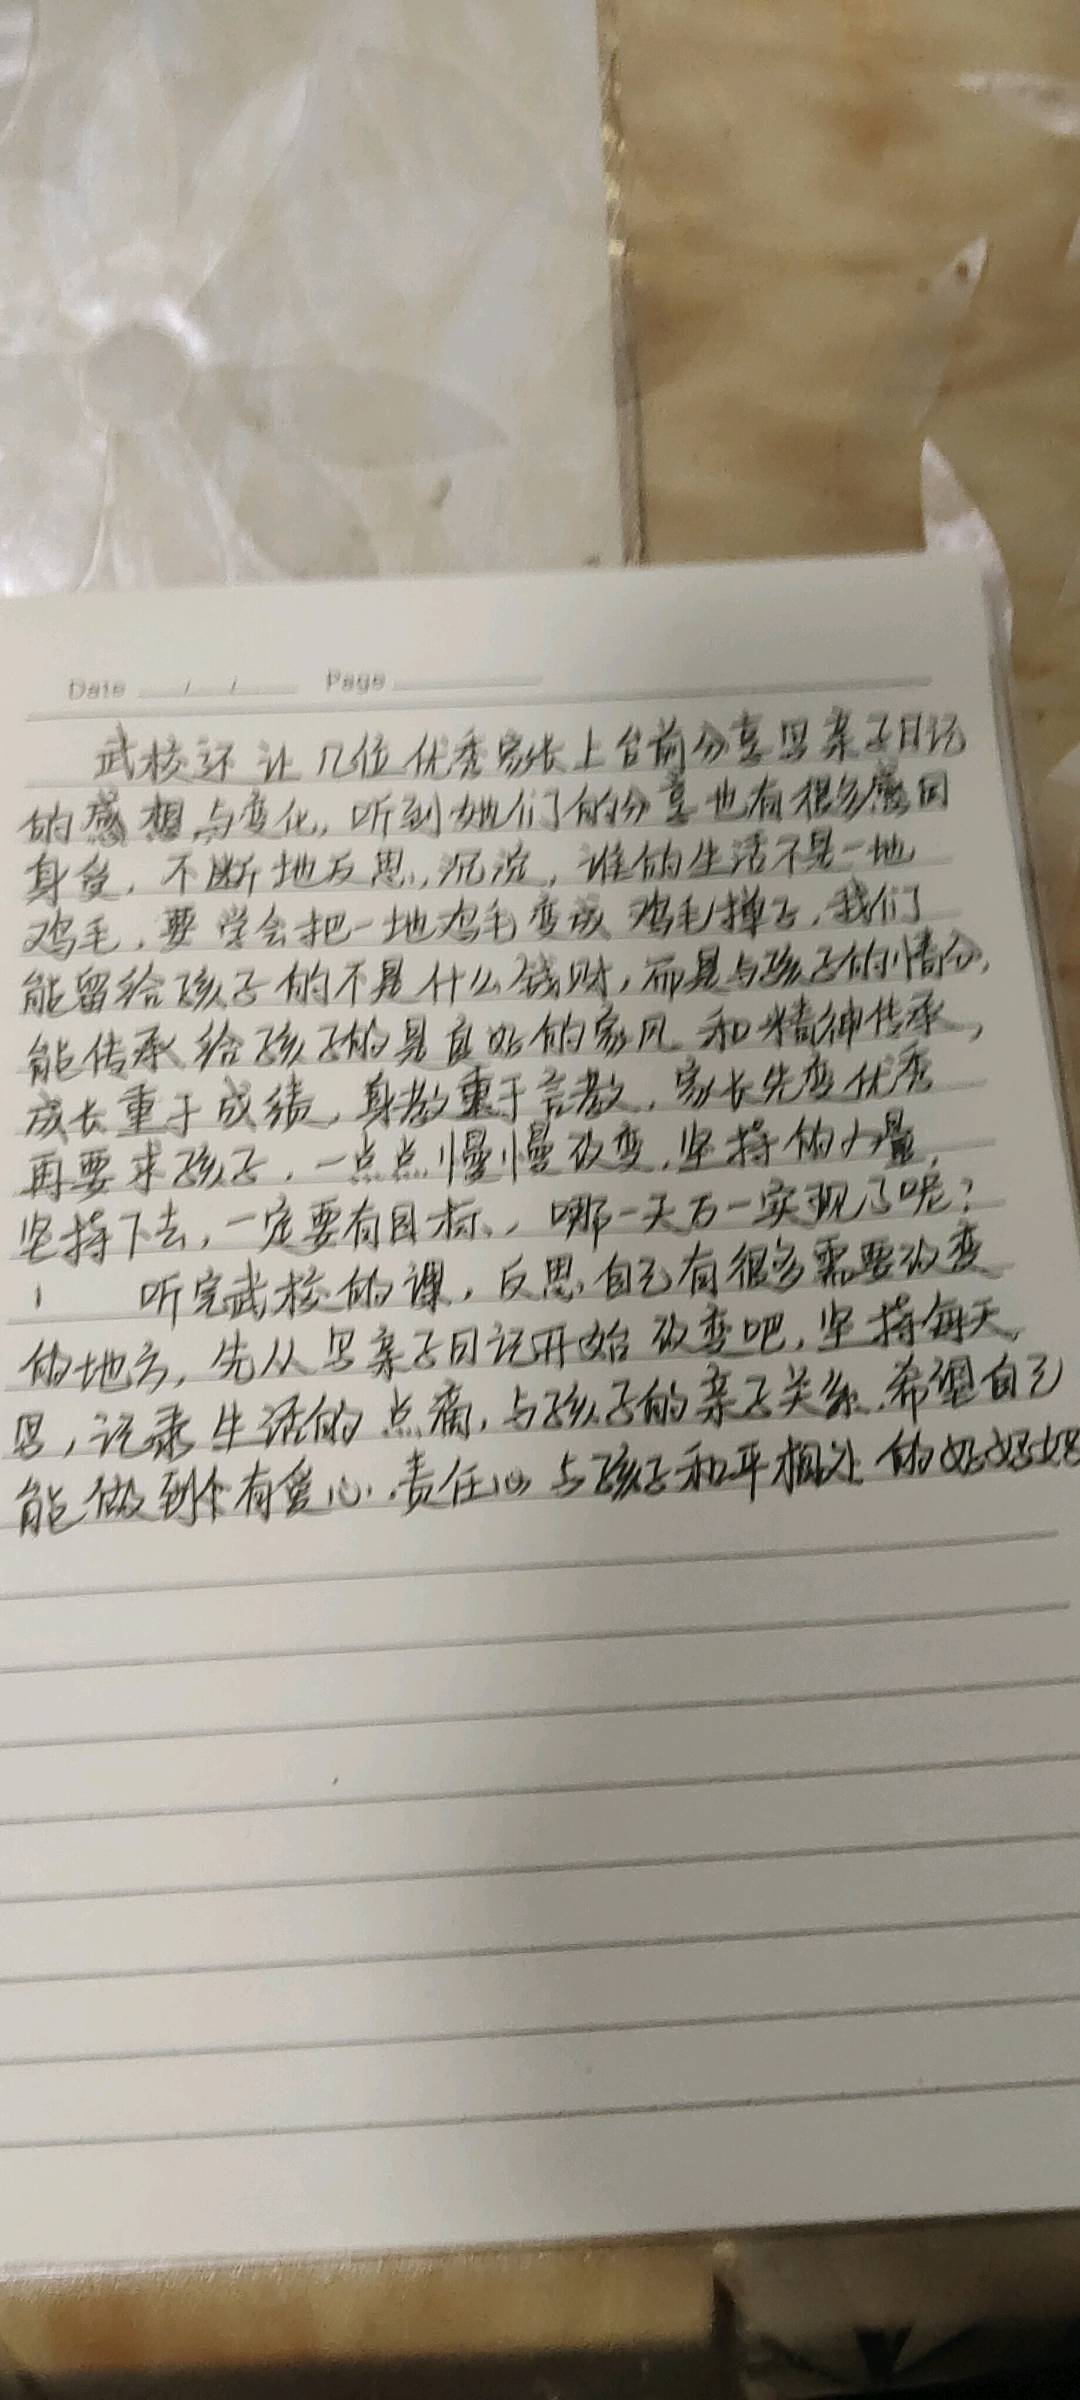 Date / / Page
武校还让几位优秀家长上台前分享写亲子日记
的感想与变化，听到她们的分享也有很多感同
身受，不断地反思，沉淀，谁的生活不是一地
鸡毛，要学会把一地鸡毛变成鸡毛掸子，我们
能留给孩子的不是什么钱财，而是与孩子的情分，
能传承给孩子的是良好的家风和精神传承，
成长重于成绩，身教重于言教，家长先变优秀
再要求孩子，一点点慢慢改变，坚持的力量，
坚持下去，一定要有目标，哪一天万一实现了呢？
听完武校的课，反思自己有很多需要改变
的地方，先从写亲子日记开始改变吧，坚持每天
写，记录生活的点滴，与孩子的亲子关系，希望自己
能做到个有爱心，责任心与孩子和平相处的好妈妈